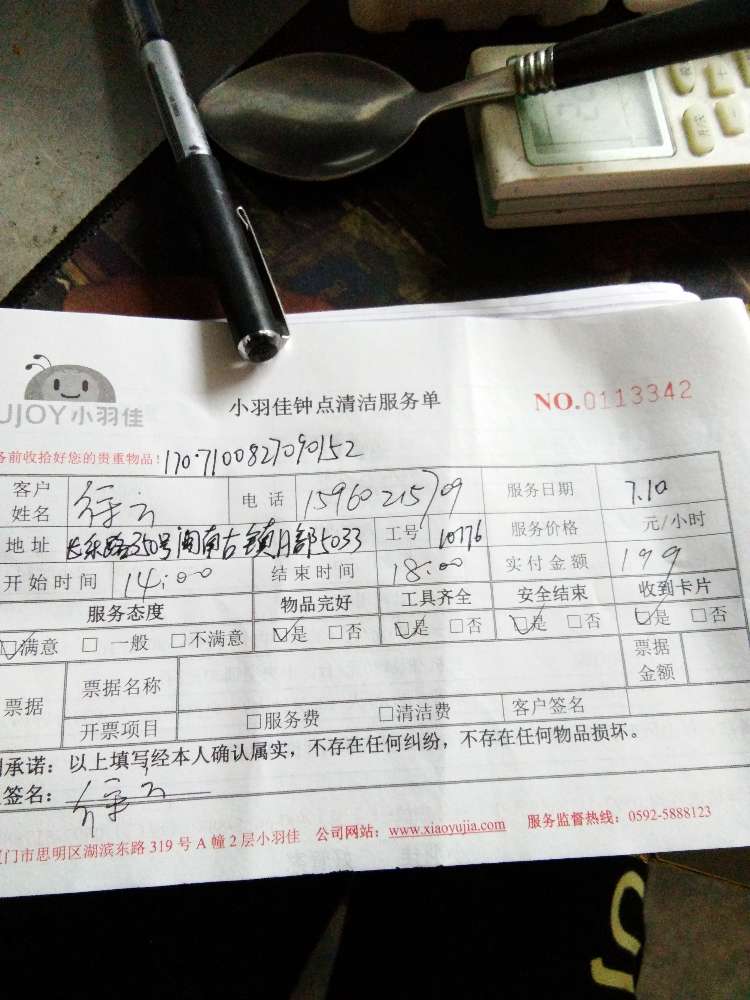 UJOY小羽佳
小羽佳钟点清洁服务单
NO.0113342
务前收拾好您的贵重物品! 1707100827090152
客户姓名 电话 15960215709 服务日期 7.10
地址 长乐路350号闽南古镇 5033 工号 10776 服务价格 元/小时
开始时间 14:00 结束时间 18:00 实付金额 199
服务态度 物品完好 工具齐全 安全结束 收到卡片
☑满意 □一般 □不满意 ☑是 □否 ☑是 □否 ☑是 □否 ☑是 □否
票据 票据名称 票据金额
开票项目 □服务费 □清洁费 客户签名
承诺:以上填写经本人确认属实,不存在任何纠纷,不存在任何物品损坏。
签名:
门市思明区湖滨东路319号A幢2层小羽佳 公司网站:www.xiaoyujia.com 服务监督热线:0592-5888123